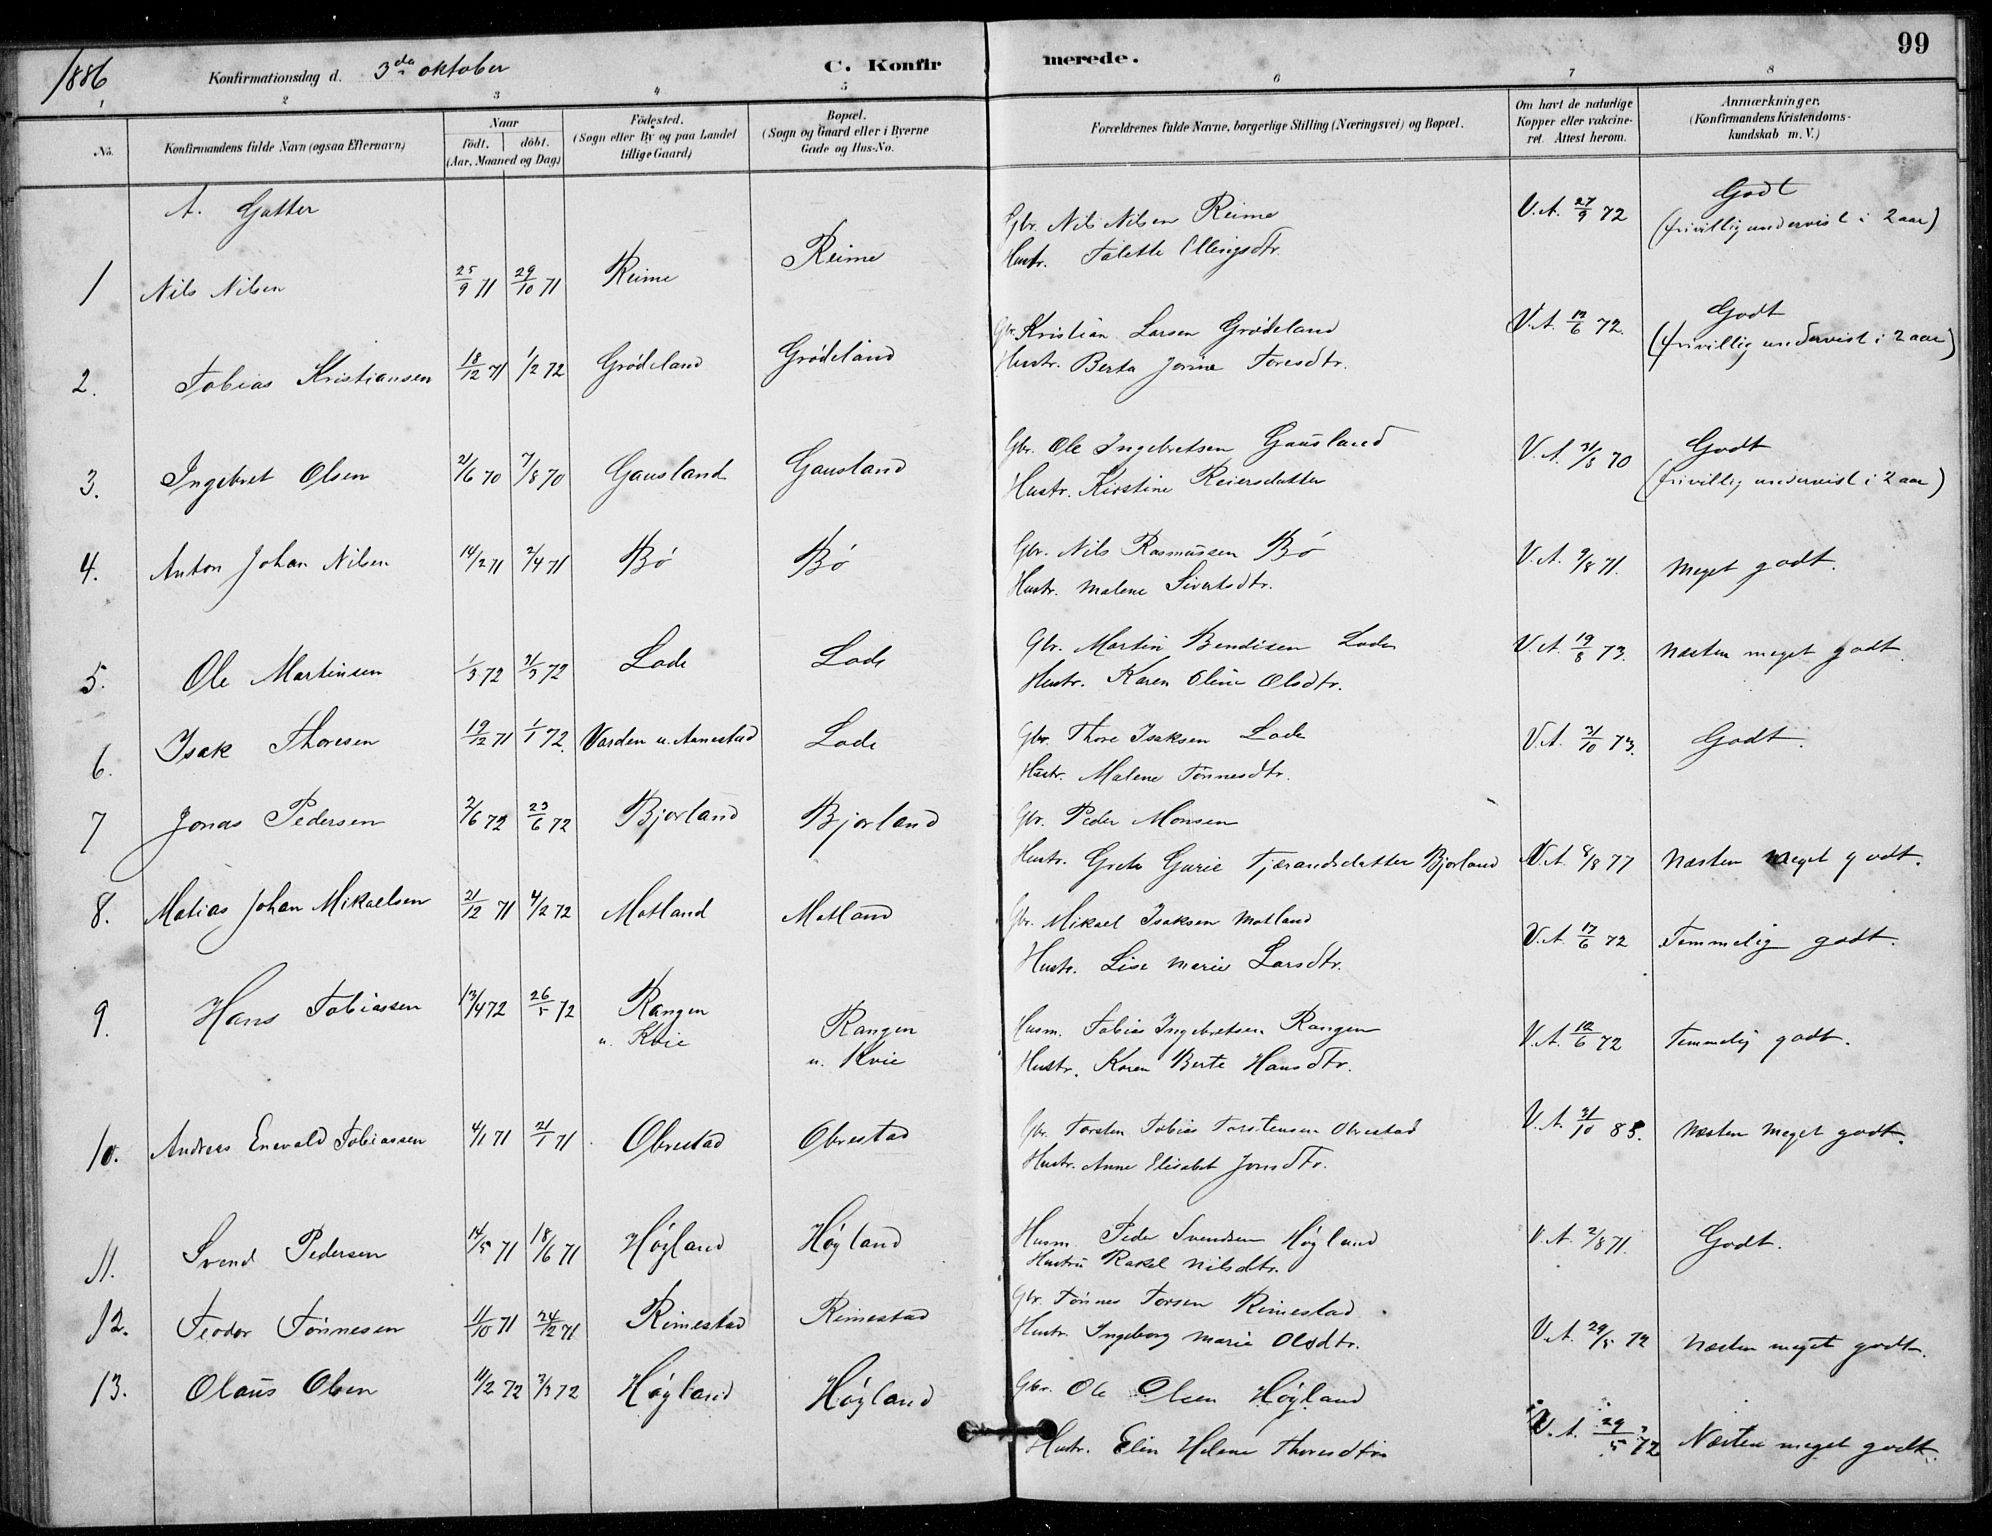 1886 Konfirmationsdag d. 3da oktober C. Konfirmerede. 99
1 2 3 4 5 6 7 8
No. Konfirmandens fulde Navn (ogsaa Efternavn) Naar födt. döbt. (Aar, Maaned og Dag) Födested. (Sogn eller By og paa Landet tillige Gaard) Bopæl. (Sogn og Gaard eller i Byerne Gade og Hus-No. Forældrenes fulde Navne, borgerlige Stilling (Næringsvei) og Bopæl. Om havt de naturlige Kopper eller vakcineret. Attest herom. Anmærkninger. (Konfirmandens Kristendomskundskab m. V.)
A. Gutter
1 Nils Nilsen 25/9 71 29/10 71 Reime Reime Gbr. Nils Nilsen Reime V.A. 27/9 72 Godt
Hustr. Talette Ellingsdtr. (frivillig undervist i 2 aar)
2. Tobias Kristiansen 18/12 71 1/2 72 Grödeland Grödeland Gbr. Kristian Larsen Grödeland V.A. 12/6 72. Godt
Hustr. Berta Jorine Toresdtr. (frivillig undervist i 2 aar)
3. Ingebret Olsen 21/6 70 7/8 70 Gausland Gausland Gbr. Ole Ingebretsen Gausland V.A. 31/8 70 Godt
Hustr. Kirstine Reiersdatter (frivillig undervist i 2 aar)
4. Anton Johan Nilsen 14/2 71 2/4 71 Bö Bö Gbr. Nils Rasmussen Bö V.A. 9/8 71. Meget godt.
Hustr. Malene Sivertsdtr.
5. Ole Martinsen 1/3 72 31/3 72 Lode Lode Gbr. Martin Bendiksen Lode V.A. 19/8 73. Næsten meget godt.
Hustr. Karen Oline Olsdtr.
6. Isak Thoresen 19/12 71 1/1 72. Varden u. Aanestad Lode Gbr. Thore Isaksen Lode V.A. 31/10 73. Godt.
Hustr. Malene Tönnesdtr.
7 Jonas Pedersen 2/6 72 23/6 72 Bjorland Bjorland Gbr. Peder Monsen
Hustr. Grete Gurie Tjærandsdatter Bjorland V.A. 8/8 77 Næsten meget godt.
8. Matias Johan Mikaelsen 21/12 71 4/2 72 Motland Motland Gbr. Mikael Isaksen Motland V.A. 17/6 72 Temmelig godt.
Hustr. Lise Marie Larsdtr.
9. Hans Tobiassen 13/4 72 26/5 72 Rangen u. Kvie Rangen u. Kvie Husm. Tobias Ingebretsen Rangen V.A. 12/6 72 Temmelig godt.
Hustr. Karen Berte Hansdtr.
10. Andreas Enevald Tobiassen 4/1 71 21/1 71 Obrestad Obrestad Gbr. Torsten Tobias Torstensen Obrestad V.A. 31/10 85. Næsten meget godt.
Hustr. Anne Elisabet Jonsdtr.
11. Svend Pedersen 14/5 71 18/6 71 Höyland Höyland Husm. Peder Svendsen Höyland V.A. 2/8 71. Godt.
Hustru Rakel Nilsdtr.
12. Teodor Tönnesen 11/10 71 24/12 71 Rimestad Rimestad Gbr. Tönnes Torsen Rimestad
Hustr. Ingeborg Marie Olsdtr. V.A. 29/5 72 Næsten meget godt.
13. Olaus Olsen 11/2 72 3/3 72 Höyland Höyland Gbr. Ole Olsen Höyland
Hustr. Elen Helene Thoresdtr V.A. 29/5 72 Næsten meget godt.